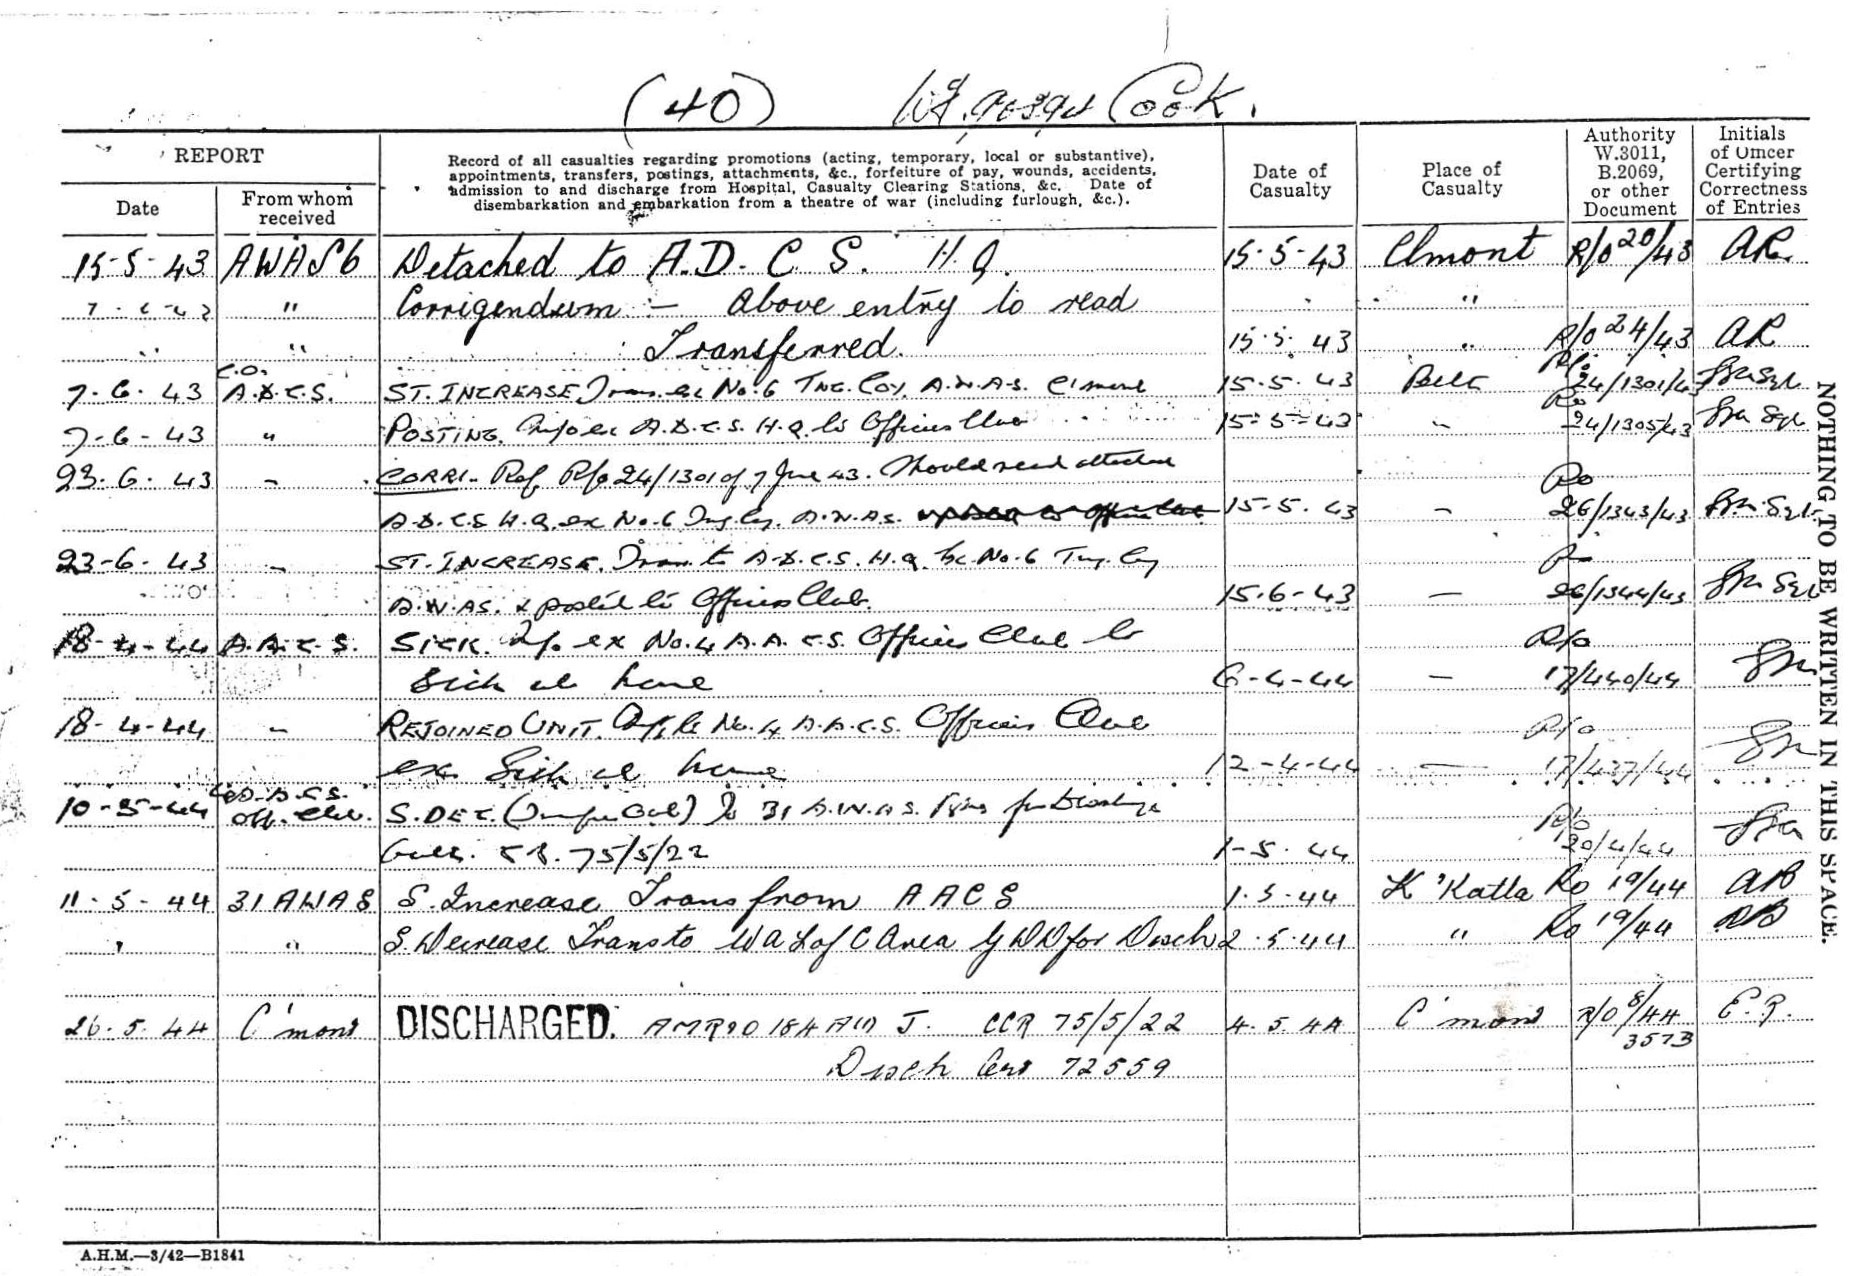 (40) Cook.
REPORT
Date
From whom received
Record of all casualties regarding promotions (acting, temporary, local or substantive),
appointments, transfers, postings, attachments, &c., forfeiture of pay, wounds, accidents,
admission to and discharge from Hospital, Casualty Clearing Stations, &c. Date of
disembarkation and embarkation from a theatre of war (including furlough, &c.).
Date of Casualty
Place of Casualty
Authority W.3011, B.2069, or other Document
Initials of Officer Certifying Correctness of Entries
15-5-43 AWAS 6 Detached to A.D.C.S. H.Q. 15.5.43 Clmont R/O 20/43 AR.
" Corrigendum :- Above entry to read "
" " Transferred. 15.5.43 " R/O 24/43 AR
7-6-43 C.O. A.D.C.S. ST. INCREASE No.6 TNG. COY. A.W.A.S. 15.5.43 R/o 24/1301/43
7-6-43 " POSTING. ex A.D.C.S. H.Q. to Officers Club 15-5-43 Ro 24/1305/43
23-6-43 CORRI. Ref R/o 24/1301 of 7 June 43. Should read attached
A.D.C.S. H.Q. ex No.6 A.W.A.S. 15-5-43 Ro 26/1343/43
23-6-43 ST. INCREASE. to A.D.C.S. H.Q. No.6 Tng. Coy
A.W.A.S. & posted to Officers Club. 15.6-43 26/1344/43
18-4-44 A.A.C.S. SICK. ex No.4 A.A.C.S. Officers Club to R/o
Sick at home 6-4-44 17/440/44
18-4-44 REJOINED UNIT. No.4 A.A.C.S. Officers Club R/o
ex Sick at home 12-4-44 17/437/44
10-5-44 Off. Club. S. DEC. To 31 A.W.A.S. for Discharge R/o
75/5/22 1-5-44 20/4/44
11-5-44 31 AWAS S. Increase Trans from AACS 1.5.44 K'Katta Ro 19/44 AB
" " S. Decrease Trans to WA L of C Area GDD for Disch 2.5.44 " Ro 19/44 AB
26.5.44 C'mont DISCHARGED. AMR&O 184 J. CCR 75/5/22 4.5.44 C'mont R/O 8/44 E.R.
3573
Disch Cert 72559
NOTHING TO BE WRITTEN IN THIS SPACE.
A.H.M.—3/42—B1841